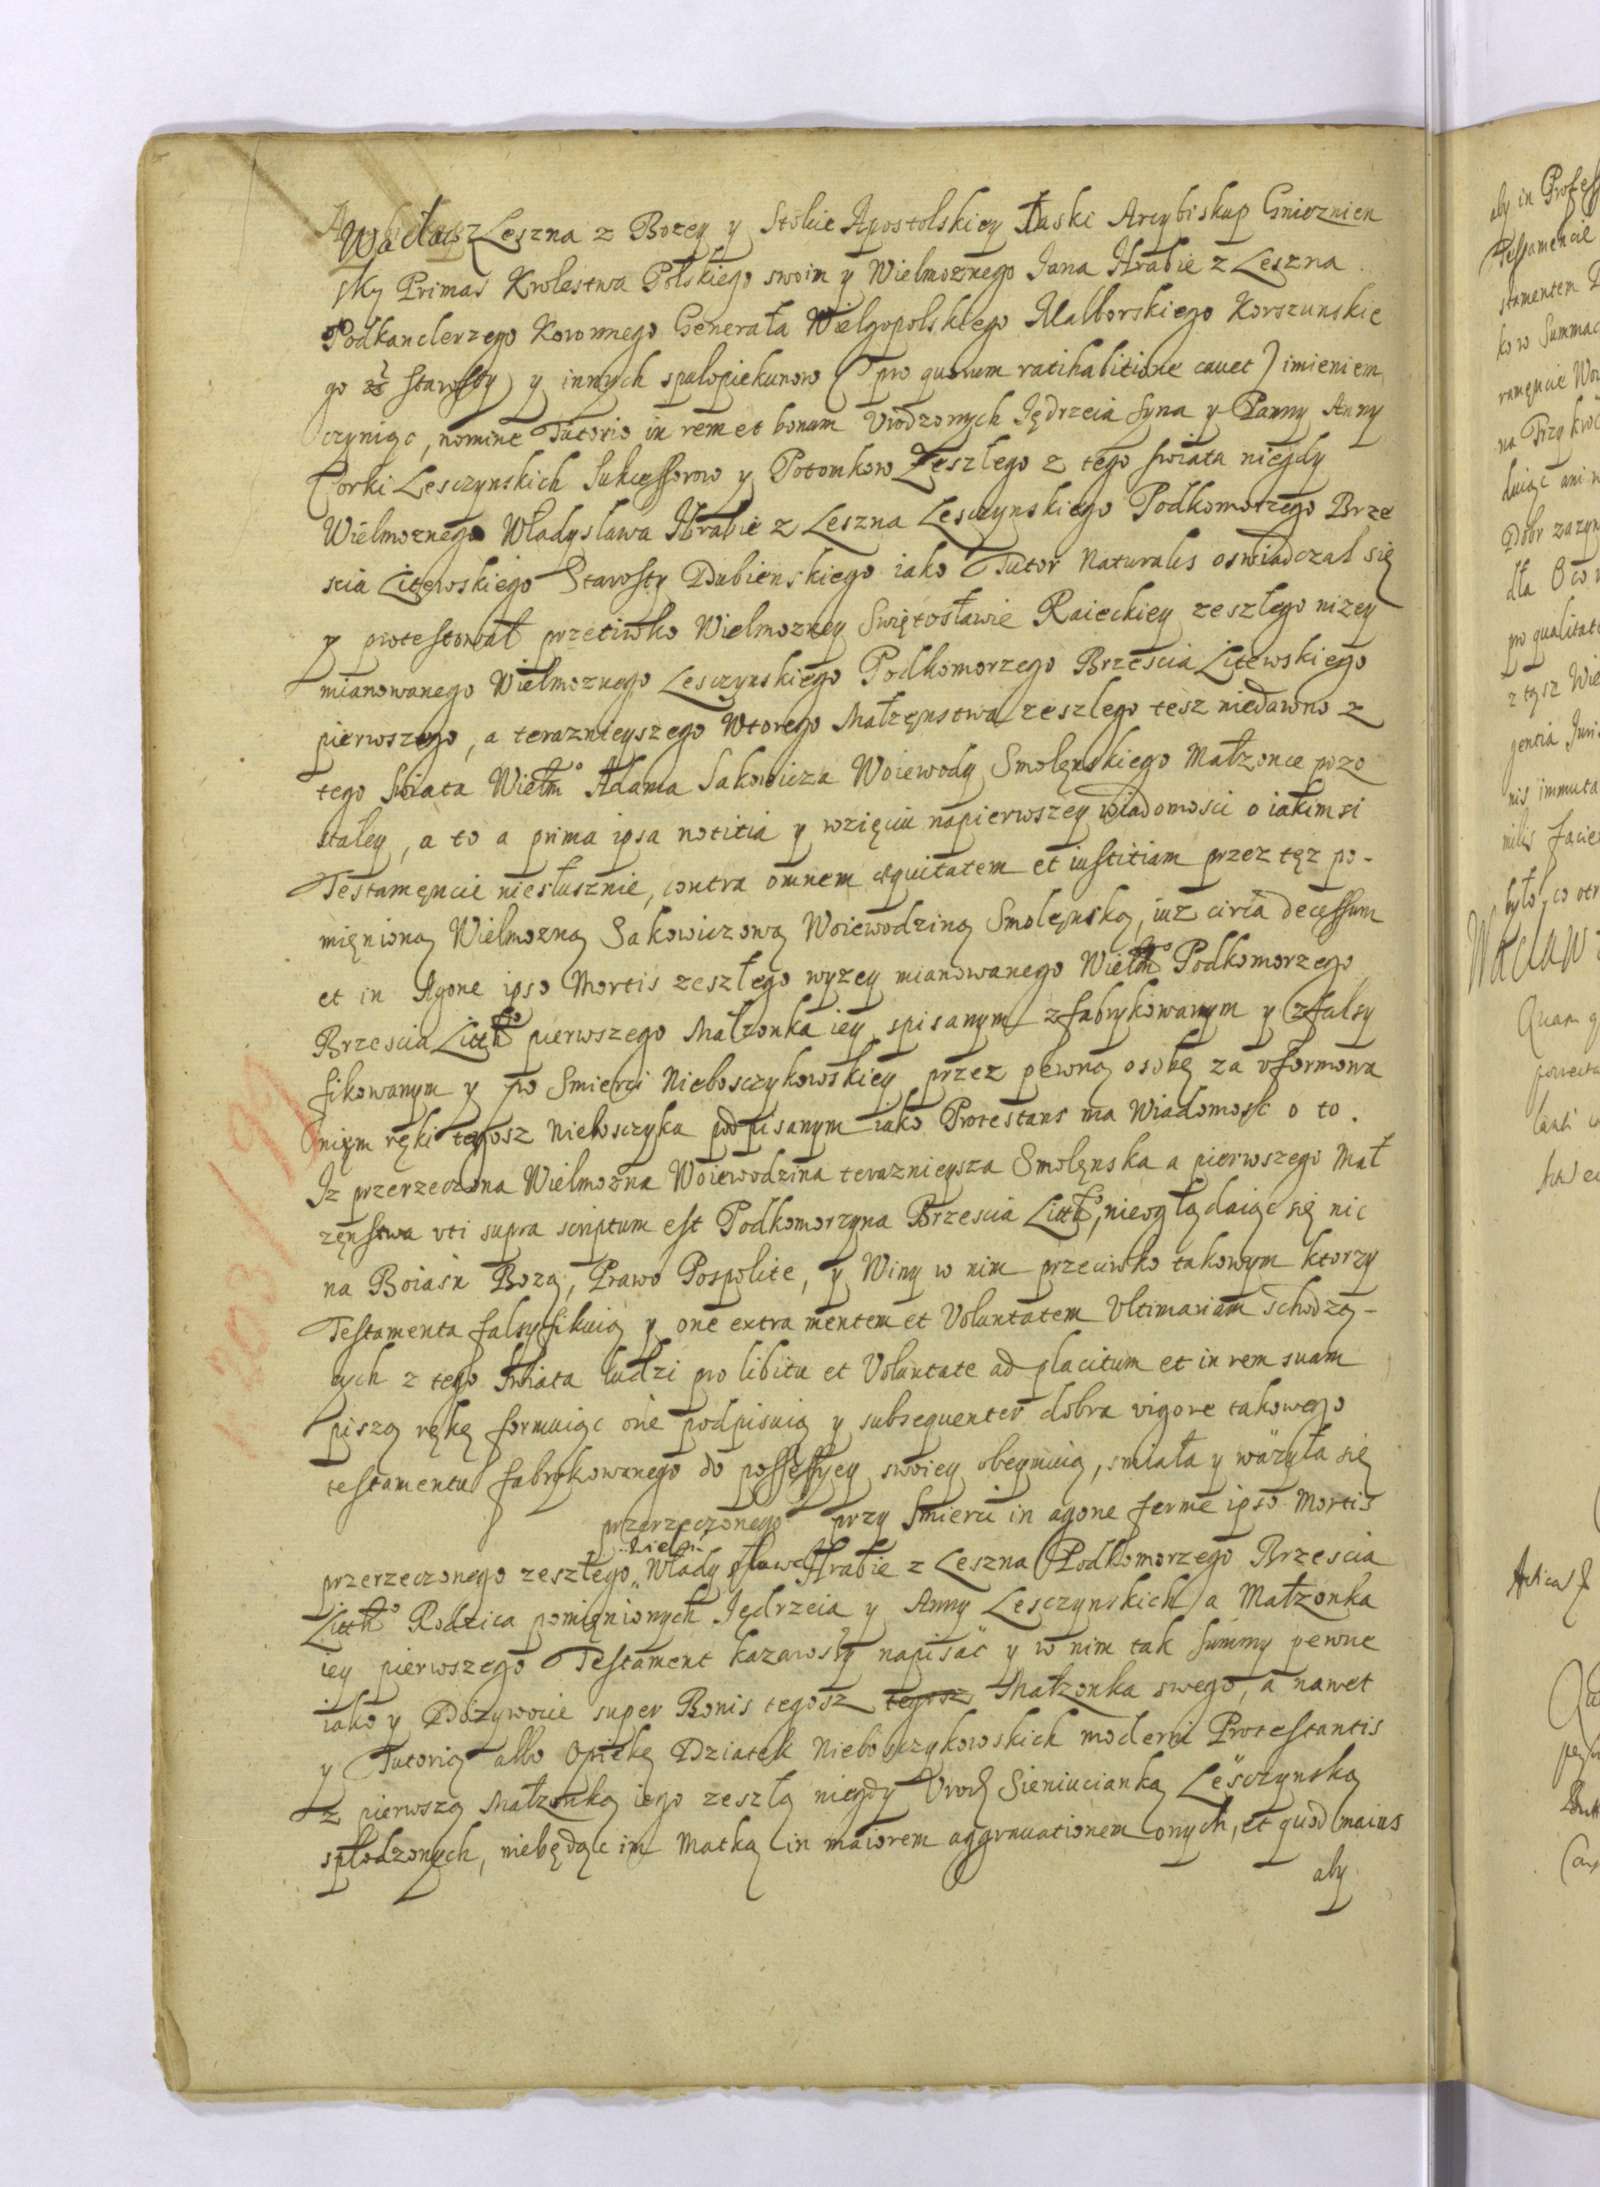 Wacław z Leszna z Bozey y Stolice Apostolskiey Łaski Arcybiskup Gnieznien
sky Primas Krolestwa Polskiego swoim y Wielmoznego Jana Hrabie z Leszna
Podkanclerzego Koronnego Generała Wielgopolskiego Malborskiego Korszunskie
go Starosty y innych spolopiekunow (pro quorum ratihabitione cauet) imieniem
czyniąc, nomine Tutorio in rem et bonum Urodzonych Jędrzeia syna y Panny Anny
Corki Lesczynskich Sukcessorow y Potomkow Zeszłego z tego swiata niegdy
Wielmoznego Władysława Hrabie z Leszna Lesczynskiego Podkomorzego Brze
scia Litewskiego Starosty Dubienskiego iako Tutor Naturalis oswiadczał się
y protestował przeciwko Wielmozney Swiętosławie Raieckiey zeszłego nizey
mianowanego Wielmoznego Lesczynskiego Podkomorzego Brzescia Litewskiego
pierwszego, a teraznieyszego Wtorego Małzęnstwa zeszłego tesz niedawno z
tego Swiata Wielmo Adama Sakowicza Woiewody Smolęnskiego Małzonce pozo
staley, a to a prima ipsa notitia y wzięciu napierwszey wiadomosci o iakimsi
Testamęncie niesłusznie, contra omnem æquitatem et iustitiam przez tęz po-
mięnioną Wielmozną Sakowiczową Woiewodziną Smolęnską, iuz circa decessum
et in Agone ipso Mortis zeszłego wyzey mianowanego Wielmo Podkomorzego
Brzescia Littgo pierwszego Małzonka iey spisanym zfabrykowanym y zfalsy
fikowanym y po Smierci Nieboszczykowskiey przez pewną osobę za vformowa
nięm ręki tegosz Niebosczyka podpisanym iako Protestans ma Wiadomosc o to.
Iz przerzeczona Wielmozna Woiewodzina teraznieysza Smolęnska a pierwszego Mał
zęnstwa uti supra scriptum est Podkomorzyna Brzescia Littgo, nieoglądaiąc się nic
na Boiasn Bozą, Prawo Pospolite, y Winy w nim przeciwko takowym ktorzy
Testamenta falsyfikuią y one extra mentem et Voluntatem Ultimariam schodzą-
cych z tego Swiata ludzi pro libitu et Voluntate ad placitum et in rem suam
piszą rękę formuiąc one podpisuią y subsequenter dobra vigore takowego
testamentu fabrykowanego do possessyey swoiey obeymuią, smiała y wazyła się
przerzeczonego przy Smierci in agone ferme ipso Mortis
przerzeczonego zeszłego Wielm Władysława Hrabie z Leszna Podkomorzego Brzescia
Littgo Rodzica pomięnionych Jędrzeia y Anny Lesczynskich a Małzonka
iey pierwszego Testament kazawszy napisać y w nim tak Summy pewne
iako y Dozywocie super Bonis tegosz tegosz Małzonka swego, a nawet
y Tutorią albo Opiekę Dziatek Niebosczykowskich moderni Protestantis
z pierwszą Małzonką iego zeszłą niegdy Urodz Sieniucianką Lesczynską
spłodzonych, niebędąc im Matką in maiorem aggrauationem onych, et quod maius
aby